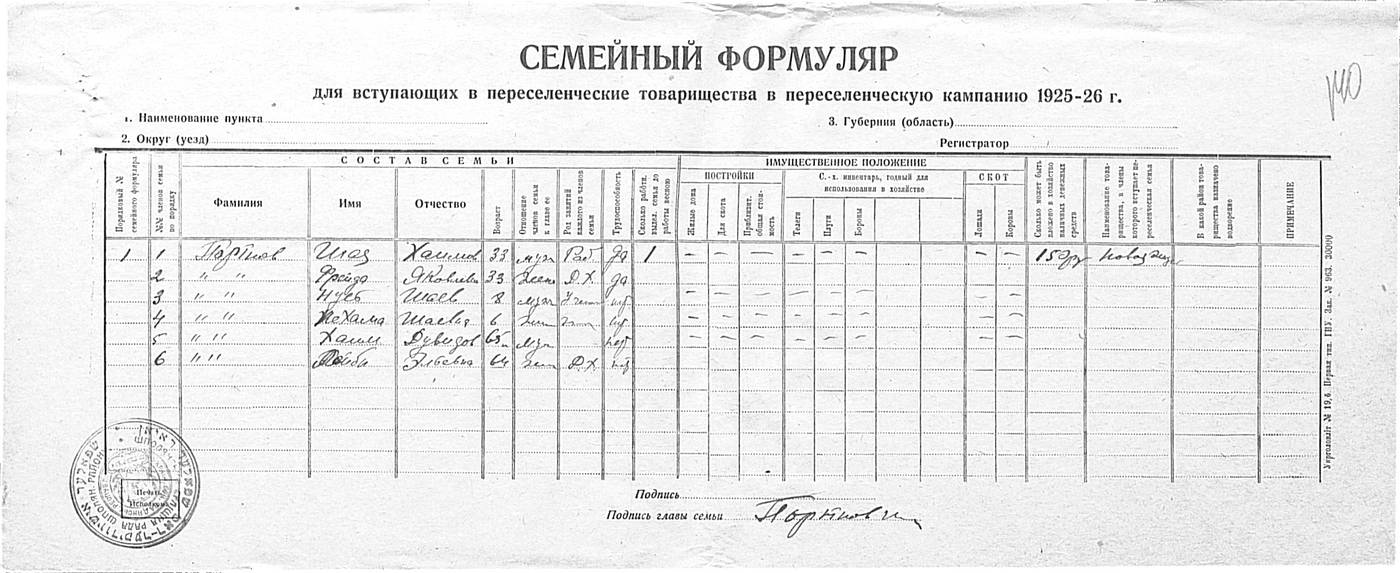 140
СЕМЕЙНЫЙ ФОРМУЛЯР
для вступающих в переселенческие товарищества в переселенческую кампанию 1925-26 г.
1. Наименование пункта
3. Губерния (область)
2. Округ (уезд)
Регистратор
Порядковый № семейного формуляра
№№ членов семьи по порядку
СОСТАВ СЕМЬИ
Фамилия
Имя
Отчество
Возраст
Отношение членов семьи к главе ее
Род занятий каждого из членов семьи
Трудоспособность
Сколько работн. выдел. семья до работы весною
ИМУЩЕСТВЕННОЕ ПОЛОЖЕНИЕ
ПОСТРОЙКИ
Жилые дома
Для скота
Приблизит. общая стоимость
С.-х. инвентарь, годный для использования в хозяйстве
Телеги
Плуги
Бороны
СКОТ
Лошади
Коровы
Сколько может быть вложено в хозяйство наличных денежных средств
Наименование товарищества, в члены которого вступает переселенческая семья
В какой район товарищества назначено водворение
ПРИМЕЧАНИЕ
1 1 Портнов Шая Хаимов 33 муж Раб да 1 — — — — — — — —
2 " " Фрейда Яковлевна 33 жена Д.Х. да
3 " " Шаев 8 муж — — — — — — — —
4 " " Нехама Шаевна 6 — — — — — — — —
5 " " Хаим Дувидов 65 муж — — — — — — — —
6 " " 64 Д.Х.
Подпись
Подпись главы семьи Портнов
Печать
Исполкома
Укрголовліт № 19,4. Первая тип. ГВУ. Зак. № 963. 30000